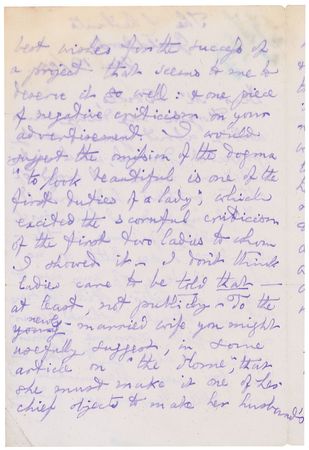 best wishes for the success of
a project that seems to me to
deserve it so well: & one piece
of negative criticism on your
advertisement. I would
suggest the omission of the dogma
"to look beautiful is one of the
first duties of a lady"; which
excited the scornful criticism
of the first two ladies to whom
I showed it. I don't think
Ladies care to be told that —
at least, not publicly. To the
newly-married wife you might
usefully suggest, in some
article on "the Home", that
she must make it one of her
chief objects to make her husband's